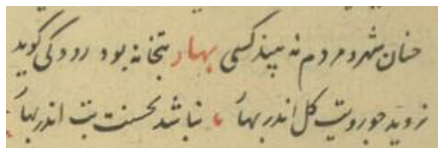 چنان شهر و مردم نه بیند کسی بهار بتخانه بود رودکی گوید
نروید چو رویت گل اندر بهار نباشد بحسنت بت اندر بهار